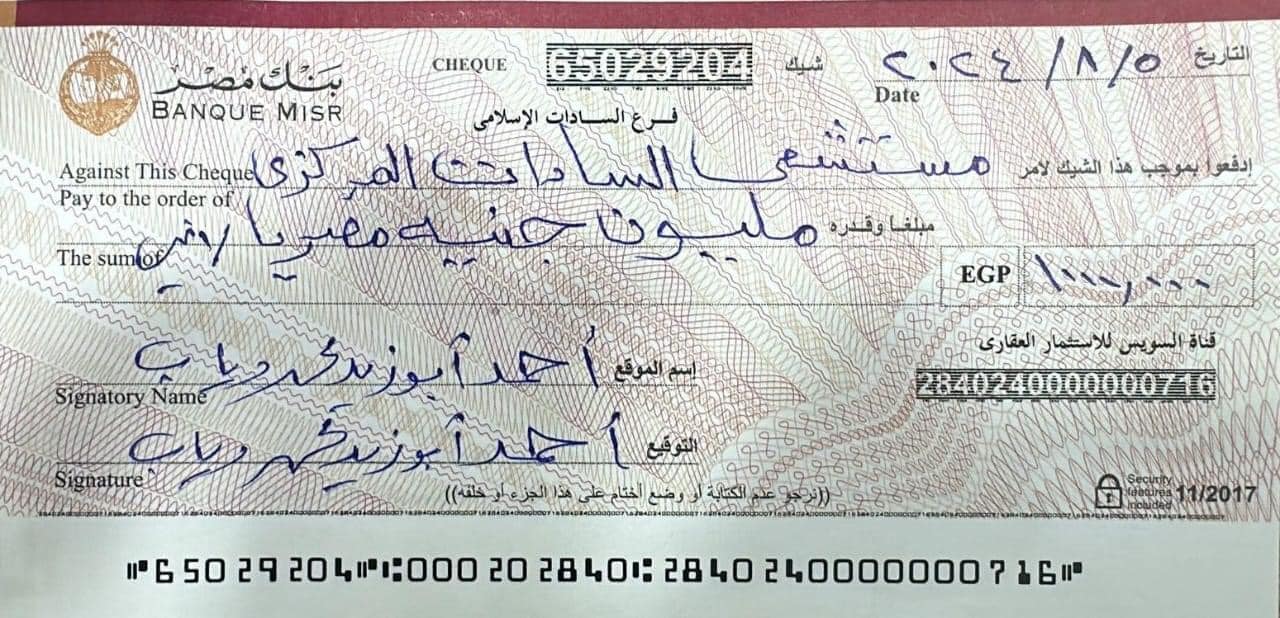 بنك مصر
BANQUE MISR
CHEQUE 65029204 شيك
التاريخ ٢٠٢٤/٨/٥
Date
فرع السادات الإسلامى
إدفعوا بموجب هذا الشيك لأمر مستشفى السادات المركزى
Against This Cheque
Pay to the order of
مبلغا وقدره مليون جنيه مصريا
The sum of
EGP ١٠٠٠,٠٠٠
قناة السويس للاستثمار العقارى
2840240000000716
إسم الموقع أحمد أبوزيد
Signatory Name
التوقيع أحمد أبوزيد
Signature
((نرجو عدم الكتابة أو وضع أختام على هذا الجزء أو خلفه))
Security features included 11/2017
⑈65029204⑈⑆000202840⑆2840240000000716⑈